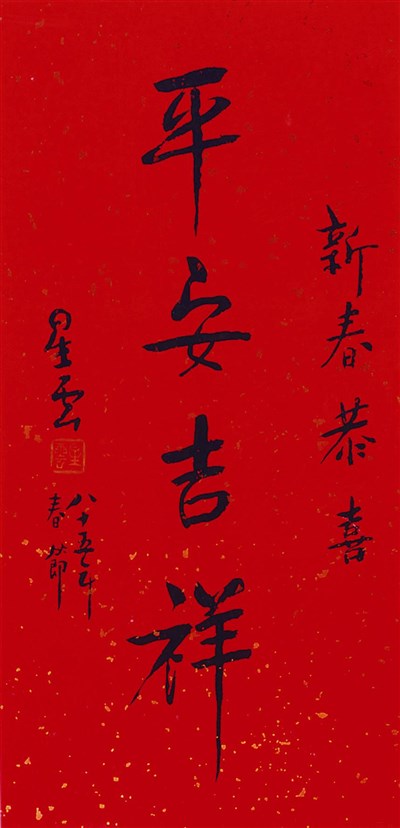 新春恭喜
平安吉祥
星雲
八十五年
春節